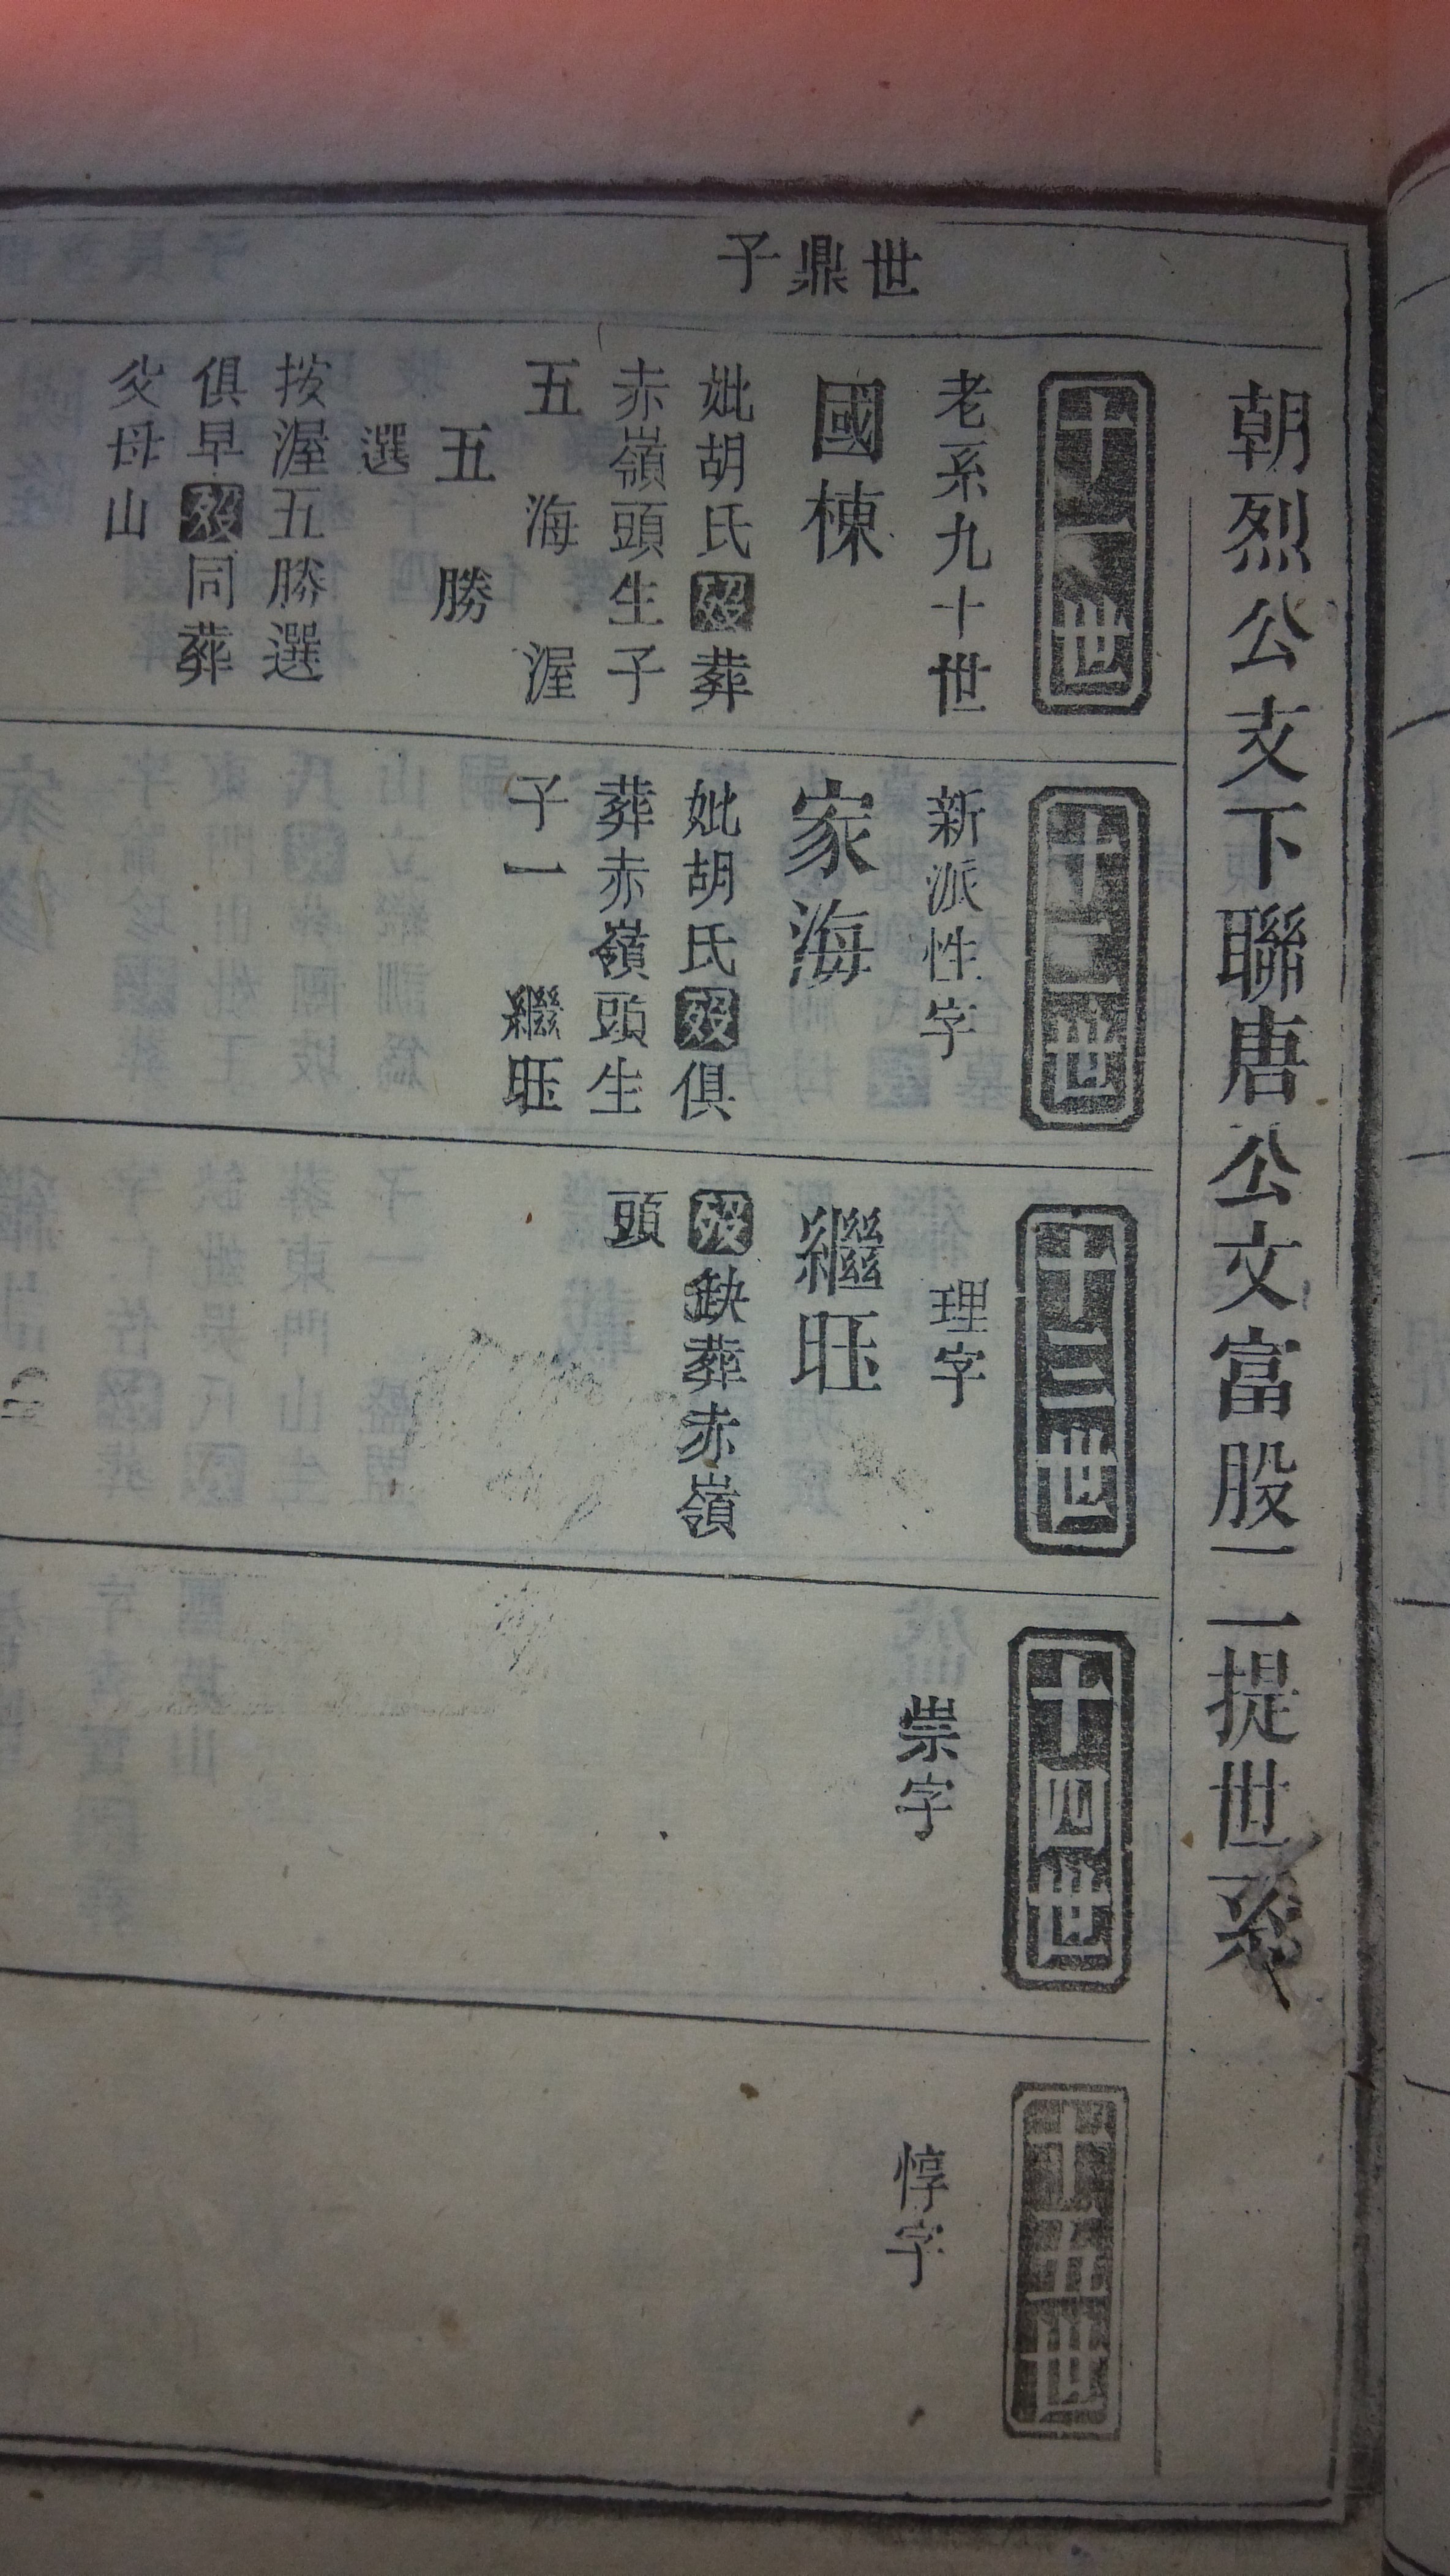 朝烈公支下聯唐公文富股一一提世系
世鼎子
十一世
老系九十世
國棟
妣胡氏歿葬
赤嶺頭生子
五 海 渥
五 勝
選
按渥五勝選
俱早歿同葬
父母山
十二世
新派性字
家海
妣胡氏歿俱
葬赤嶺頭生
子一 繼旺
十三世
理字
繼旺
歿缺葬赤嶺
頭
十四世
崇字
十五世
惇字